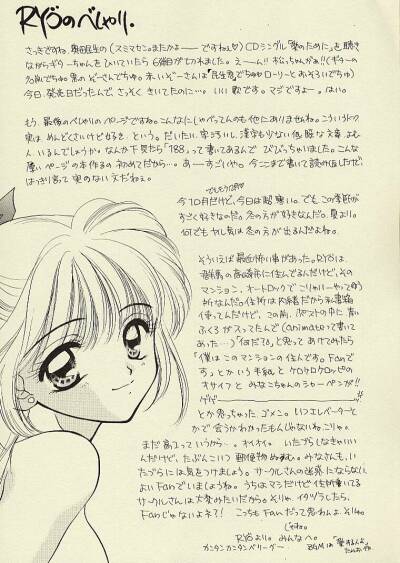 RYÖのべしゃり。
さっきですね、奥田民生の(スミマセン。またかよーですねぇ♡)CDシングル「愛のために」を聴き
ながらギターちゃんをひいていたら6弦が切れました。えーん!!松ちゃんがぁ!!(ギターの
今日、発売日だったんで、さっそくきいてたのに…。いい歌です。マジですよー。はい。
もう、最後のべしゃりのページですね。こんなにしゃべってんのも他にありませんね。こういうトコ
実はめんどくさいけど好き。という。だいたい
いるんでしょうか。なんか下見たら「188」って書いてあるんで びびっちゃいました。こんな
厚いページの本作るの初めてだから…。あーすごいや。今ここまで書いて読み返したけど
はっきり言って実のない文だねぇ。
今10月だけど、今日は超寒い。でもこの季節が
すごく好きなのだ。冬の方が好きなんだ。夏より。
何でもヤル気は冬の方が出るんだよね。
そういえば最近怖い事があった。RYÖは、
群馬の高崎市に住んでるんだけど、その
マンション、オートロックで
住所は内緒だから私書箱
使ってんだけど、この前、ポストの中に青い
ふくろが入ってたんで(animateって書いて
あった…)「何だ?」と思ってあけてみたら
「僕はこのマンションの住人です。Fanで
す」とかいう手紙とケロケロケロッピの
オサイフとみなこちゃんのシャーペンが!!
ゲゲ
とか思っちゃった。ゴメン。いつエレベーターと
かで会うかわかったもんじゃないね。こりゃ。
まだ高1っていうから…。オイオイ。いたずらしなきゃいい
んだけど、たぶんこいつ郵便物ぬすむ。みなさんも、い
たずらには気をつけましょう。サークルさんの迷惑にならない、
よいFanでいましょうね。うちはマシだけど住所書いてる
サークルさんは大変みたいだから。そりゃ、イタズラしたら、
Fanじゃないよネ?! こっちもFanだって思わんよ。
じゃね。
RYÖより。みんなへ。
カンタンカンタンベリーグー